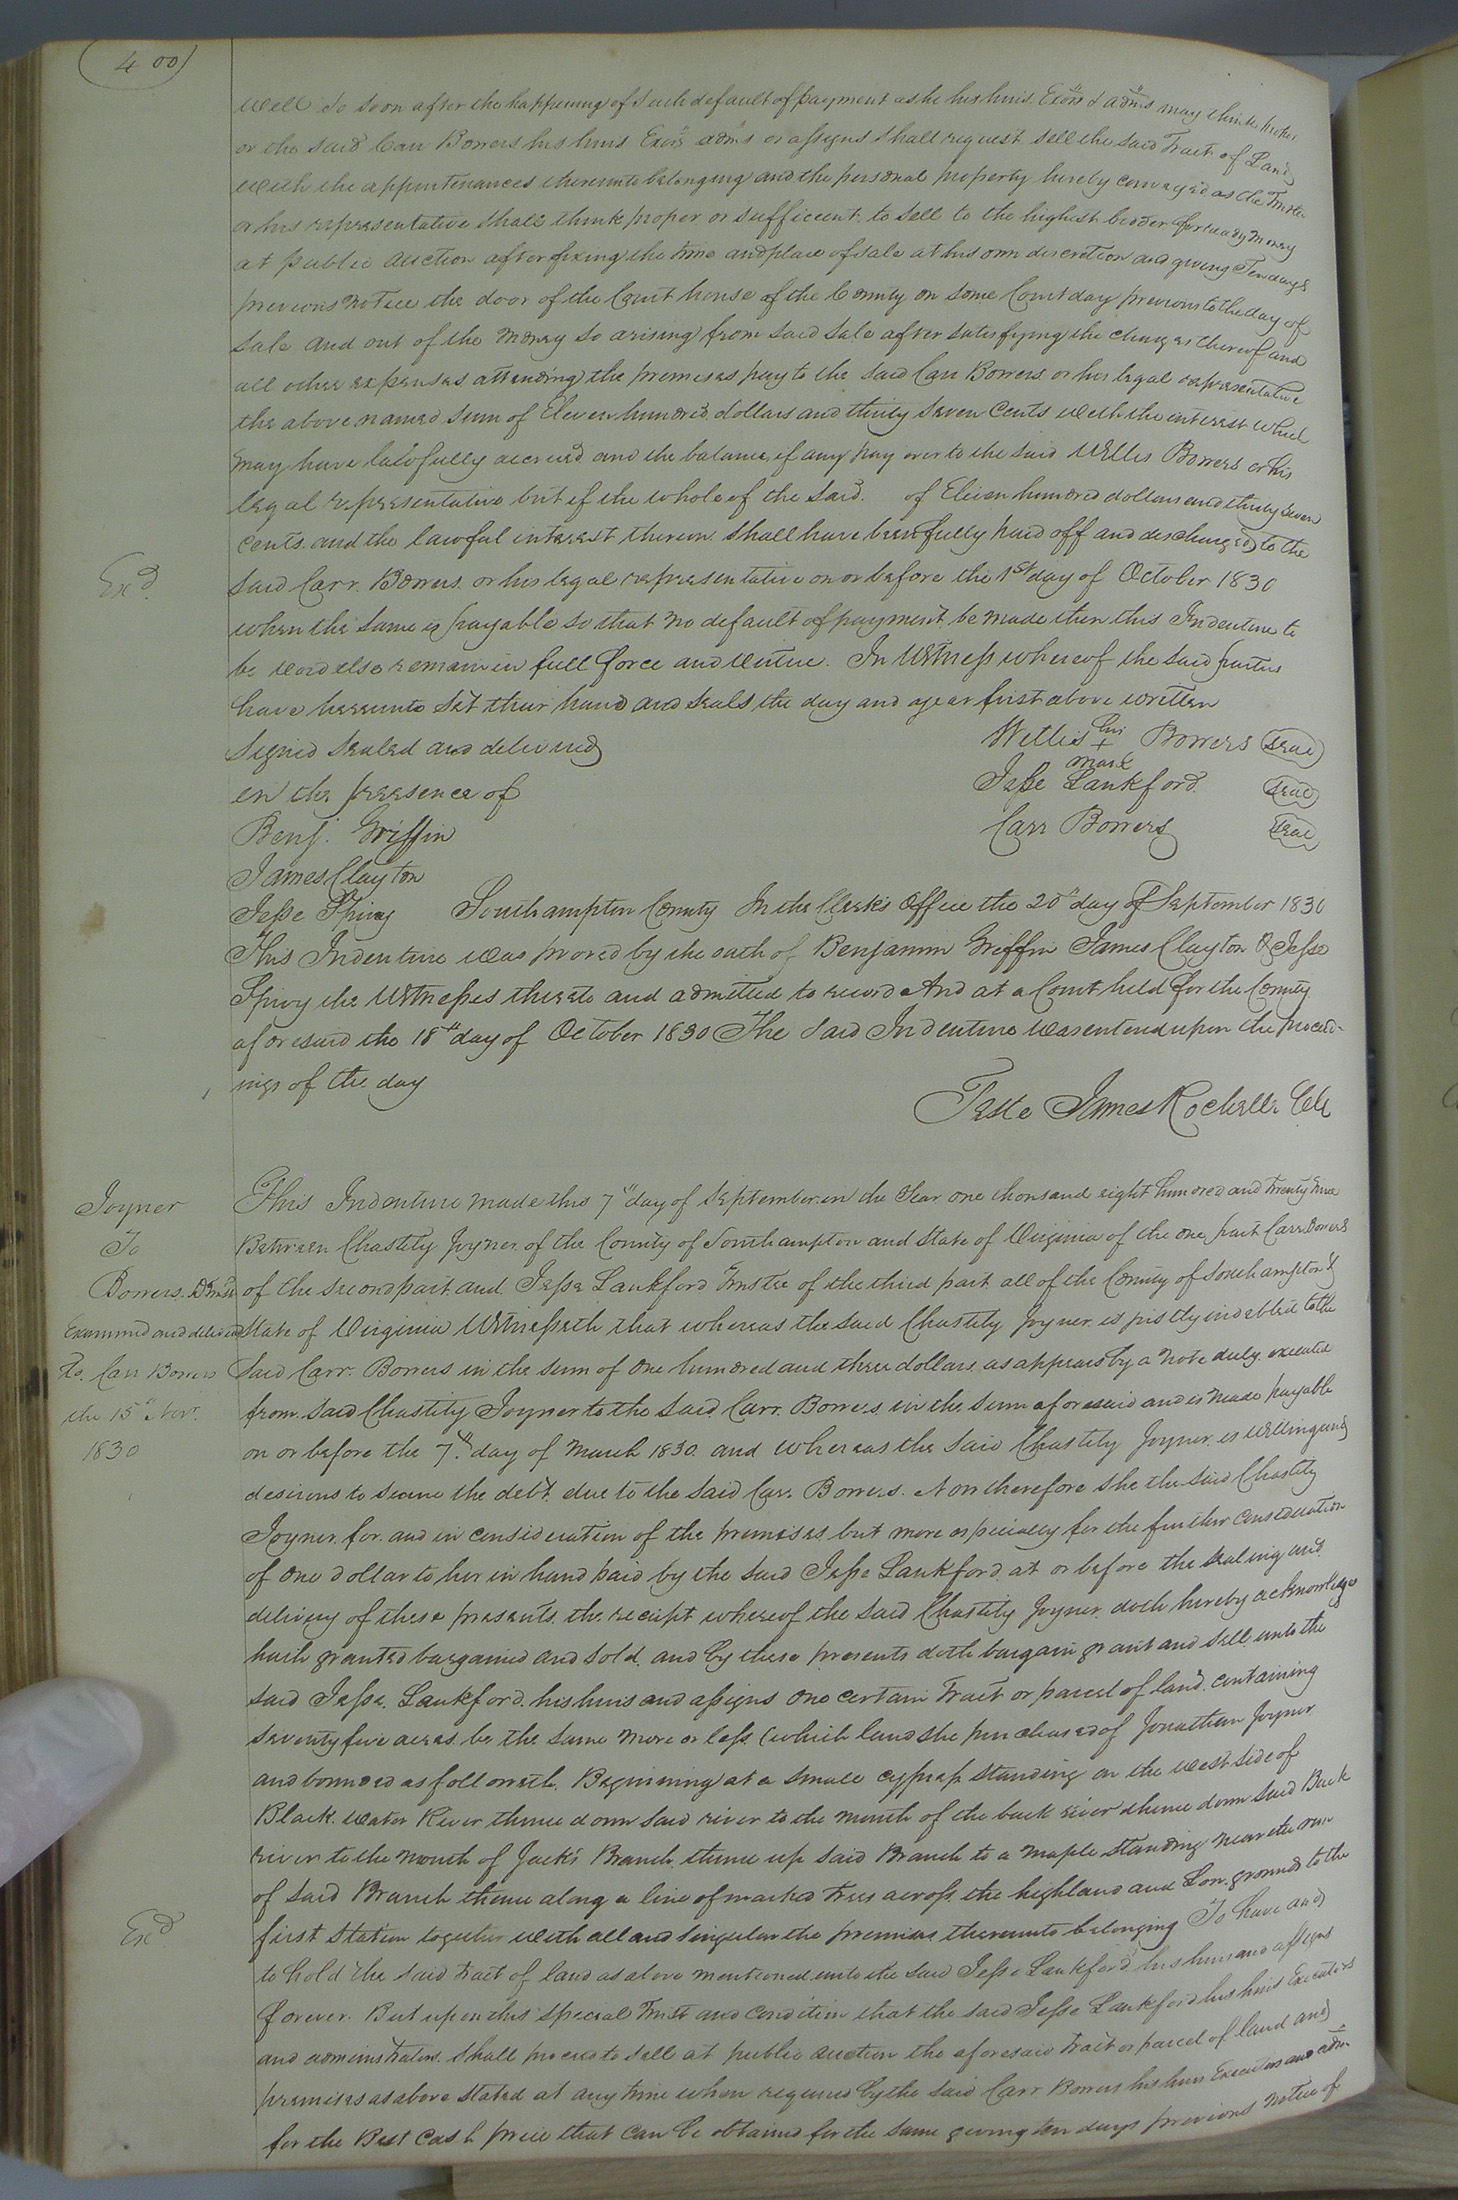 400
well so soon after the happening of such default of payment as he his heirs Exors & adms may think proper
or the said Carr Bowers his heirs Exors adms or assigns shall request sell the said Tract of Land
with the appurtenances thereunto belonging and the personal property hereby conveyed as the Trustee
or his representative shall think proper or sufficient to sell to the highest bidder for ready money
at public auction after fixing the time and place of sale at his own discretion and giving Ten days
previous notice the door of the Court house of the County on some Court day previous to the day of
sale and out of the money so arising from said sale after satisfying the charges thereof and
all other expenses attending the premises pay to the said Carr Bowers or his legal representative
the above named sum of Eleven hundred dollars and thirty seven cents with the interest which
may have lawfully accrued and the balance if any pay over to the said Willis Bowers or his
legal representative but if the whole of the said of Eleven hundred dollars and thirty seven
cents and the lawful interest thereon shall have been fully paid off and discharged to the
Exd
said Carr Bowers or his legal representative on or before the 1st day of October 1830
when the same is payable so that no default of payment be made then this Indenture to
be void else remain in full force and virtue. In Witness whereof the said parties
have hereunto set their hand and seals the day and year first above written
Signed sealed and delivered
in the presence of
Benj. Griffin
James Clayton
Jesse Spivey
Willis his + mark Bowers seal
Jesse Lankford seal
Carr Bowers seal
Southampton County In the Clerk's Office the 20th day of September 1830
This Indenture was proved by the oath of Benjamin Griffin James Clayton & Jesse
Spivy the Witnesses thereto and admitted to record And at a Court held for the County
aforesaid the 18th day of October 1830 The said Indenture was entered upon the proceed-
ings of the day
Teste James Rochelle Clk
Joyner
To
Bowers
Examined and delivered
to Carr Bowers
the 15th Novr
1830
This Indenture made this 7th day of September in the Year one thousand eight hundred and twenty nine
Between Chastity Joyner of the County of Southampton and State of Virginia of the one part Carr Bowers
of the second part and Jesse Lankford Trustee of the third part all of the County of Southampton &
State of Virginia Witnesseth that whereas the said Chastity Joyner is justly indebted to the
said Carr Bowers in the sum of one hundred and three dollars as appears by a note duly executed
from said Chastity Joyner to the said Carr Bowers in the sum aforesaid and is made payable
on or before the 7th day of March 1830 and whereas the said Chastity Joyner is willing and
desirous to secure the debt due to the said Carr Bowers. Now therefore she the said Chastity
Joyner for and in consideration of the premises but more especially for the further consideration
of one dollar to her in hand paid by the said Jesse Lankford at or before the sealing and
delivery of these presents the receipt whereof the said Chastity Joyner doth hereby acknowledge
hath granted bargained and sold and by these presents doth bargain grant and sell unto the
said Jesse Lankford his heirs and assigns one certain Tract or parcel of land containing
seventy five acres be the same more or less (which land she purchased of Jonathan Joyner
and bounded as followeth. Beginning at a small cypress standing on the west side of
Black water River thence down said river to the mouth of the back river thence down said Back
river to the mouth of Jack's Branch thence up said Branch to a maple standing near the run
of said Branch thence along a line of marked trees across the highland and Low grounds to the
Exd
first station together with all and singular the premises thereunto belonging To have and
to hold the said tract of land as above mentioned unto the said Jesse Lankford his heirs and assigns
forever. But upon this special Trust and condition that the said Jesse Lankford his heirs Executors
and administrators shall proceed to sell at public auction the aforesaid tract or parcel of land and
premises as above stated at any time when required by the said Carr Bowers his heirs Executors and adm
for the Best cash price that can be obtained for the same giving ten days previous notice of